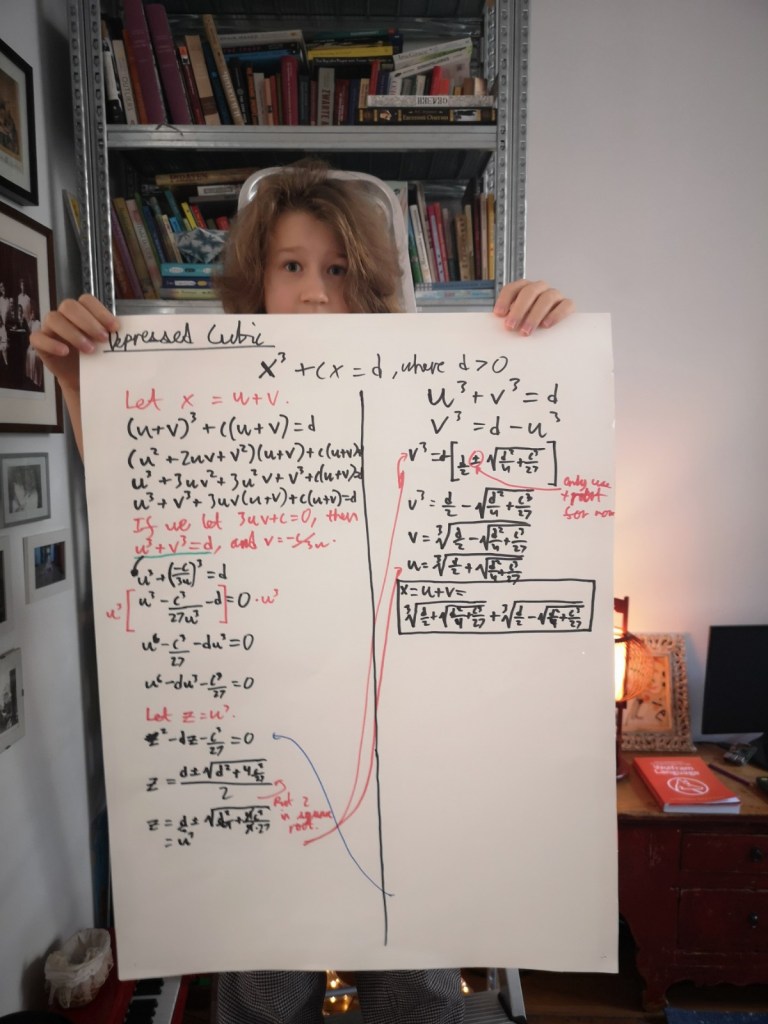 Depressed Cubic
x³ + cx = d, where d > 0
Let x = u + v.
(u+v)³ + c(u+v) = d
(u² + 2uv + v²)(u+v) + c(u+v)=d
u³ + 3uv² + 3u²v + v³ + c(u+v)=d
u³ + v³ + 3uv(u+v) + c(u+v)=d
If we let 3uv+c=0, then
u³+v³=d, and v = -c/3u.
u³ + (-c/3u)³ = d
u³ [u³ - c³/27u³ - d] = 0 · u³
u⁶ - c³/27 - du³ = 0
u⁶ - du³ - c³/27 = 0
Let z = u³.
z² - dz - c³/27 = 0
z = (d ± √(d² + 4c³/27))/2
Put 2 in square root.
z = d/2 ± √(d²/4 + 4c³/4·27)
= u³
u³ + v³ = d
v³ = d - u³
v³ = d - [d/2 ± √(d²/4 + c³/27)]
only use + part for now
v³ = d/2 - √(d²/4 + c³/27)
v = ³√(d/2 - √(d²/4 + c³/27))
u = ³√(d/2 + √(d²/4 + c³/27))
x = u + v =
³√(d/2 + √(d²/4 + c³/27)) + ³√(d/2 - √(d²/4 + c³/27))
Wolfram
Language